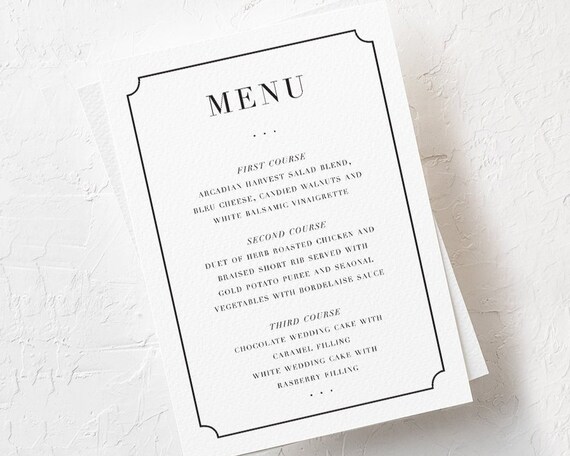 MENU
FIRST COURSE
ARCADIAN HARVEST SALAD BLEND,
BLEU CHEESE, CANDIED WALNUTS AND
WHITE BALSAMIC VINAIGRETTE
SECOND COURSE
DUET OF HERB ROASTED CHICKEN AND
BRAISED SHORT RIB SERVED WITH
GOLD POTATO PUREE AND SEAONAL
VEGETABLES WITH BORDELAISE SAUCE
THIRD COURSE
CHOCOLATE WEDDING CAKE WITH
CARAMEL FILLING
WHITE WEDDING CAKE WITH
RASBERRY FILLING